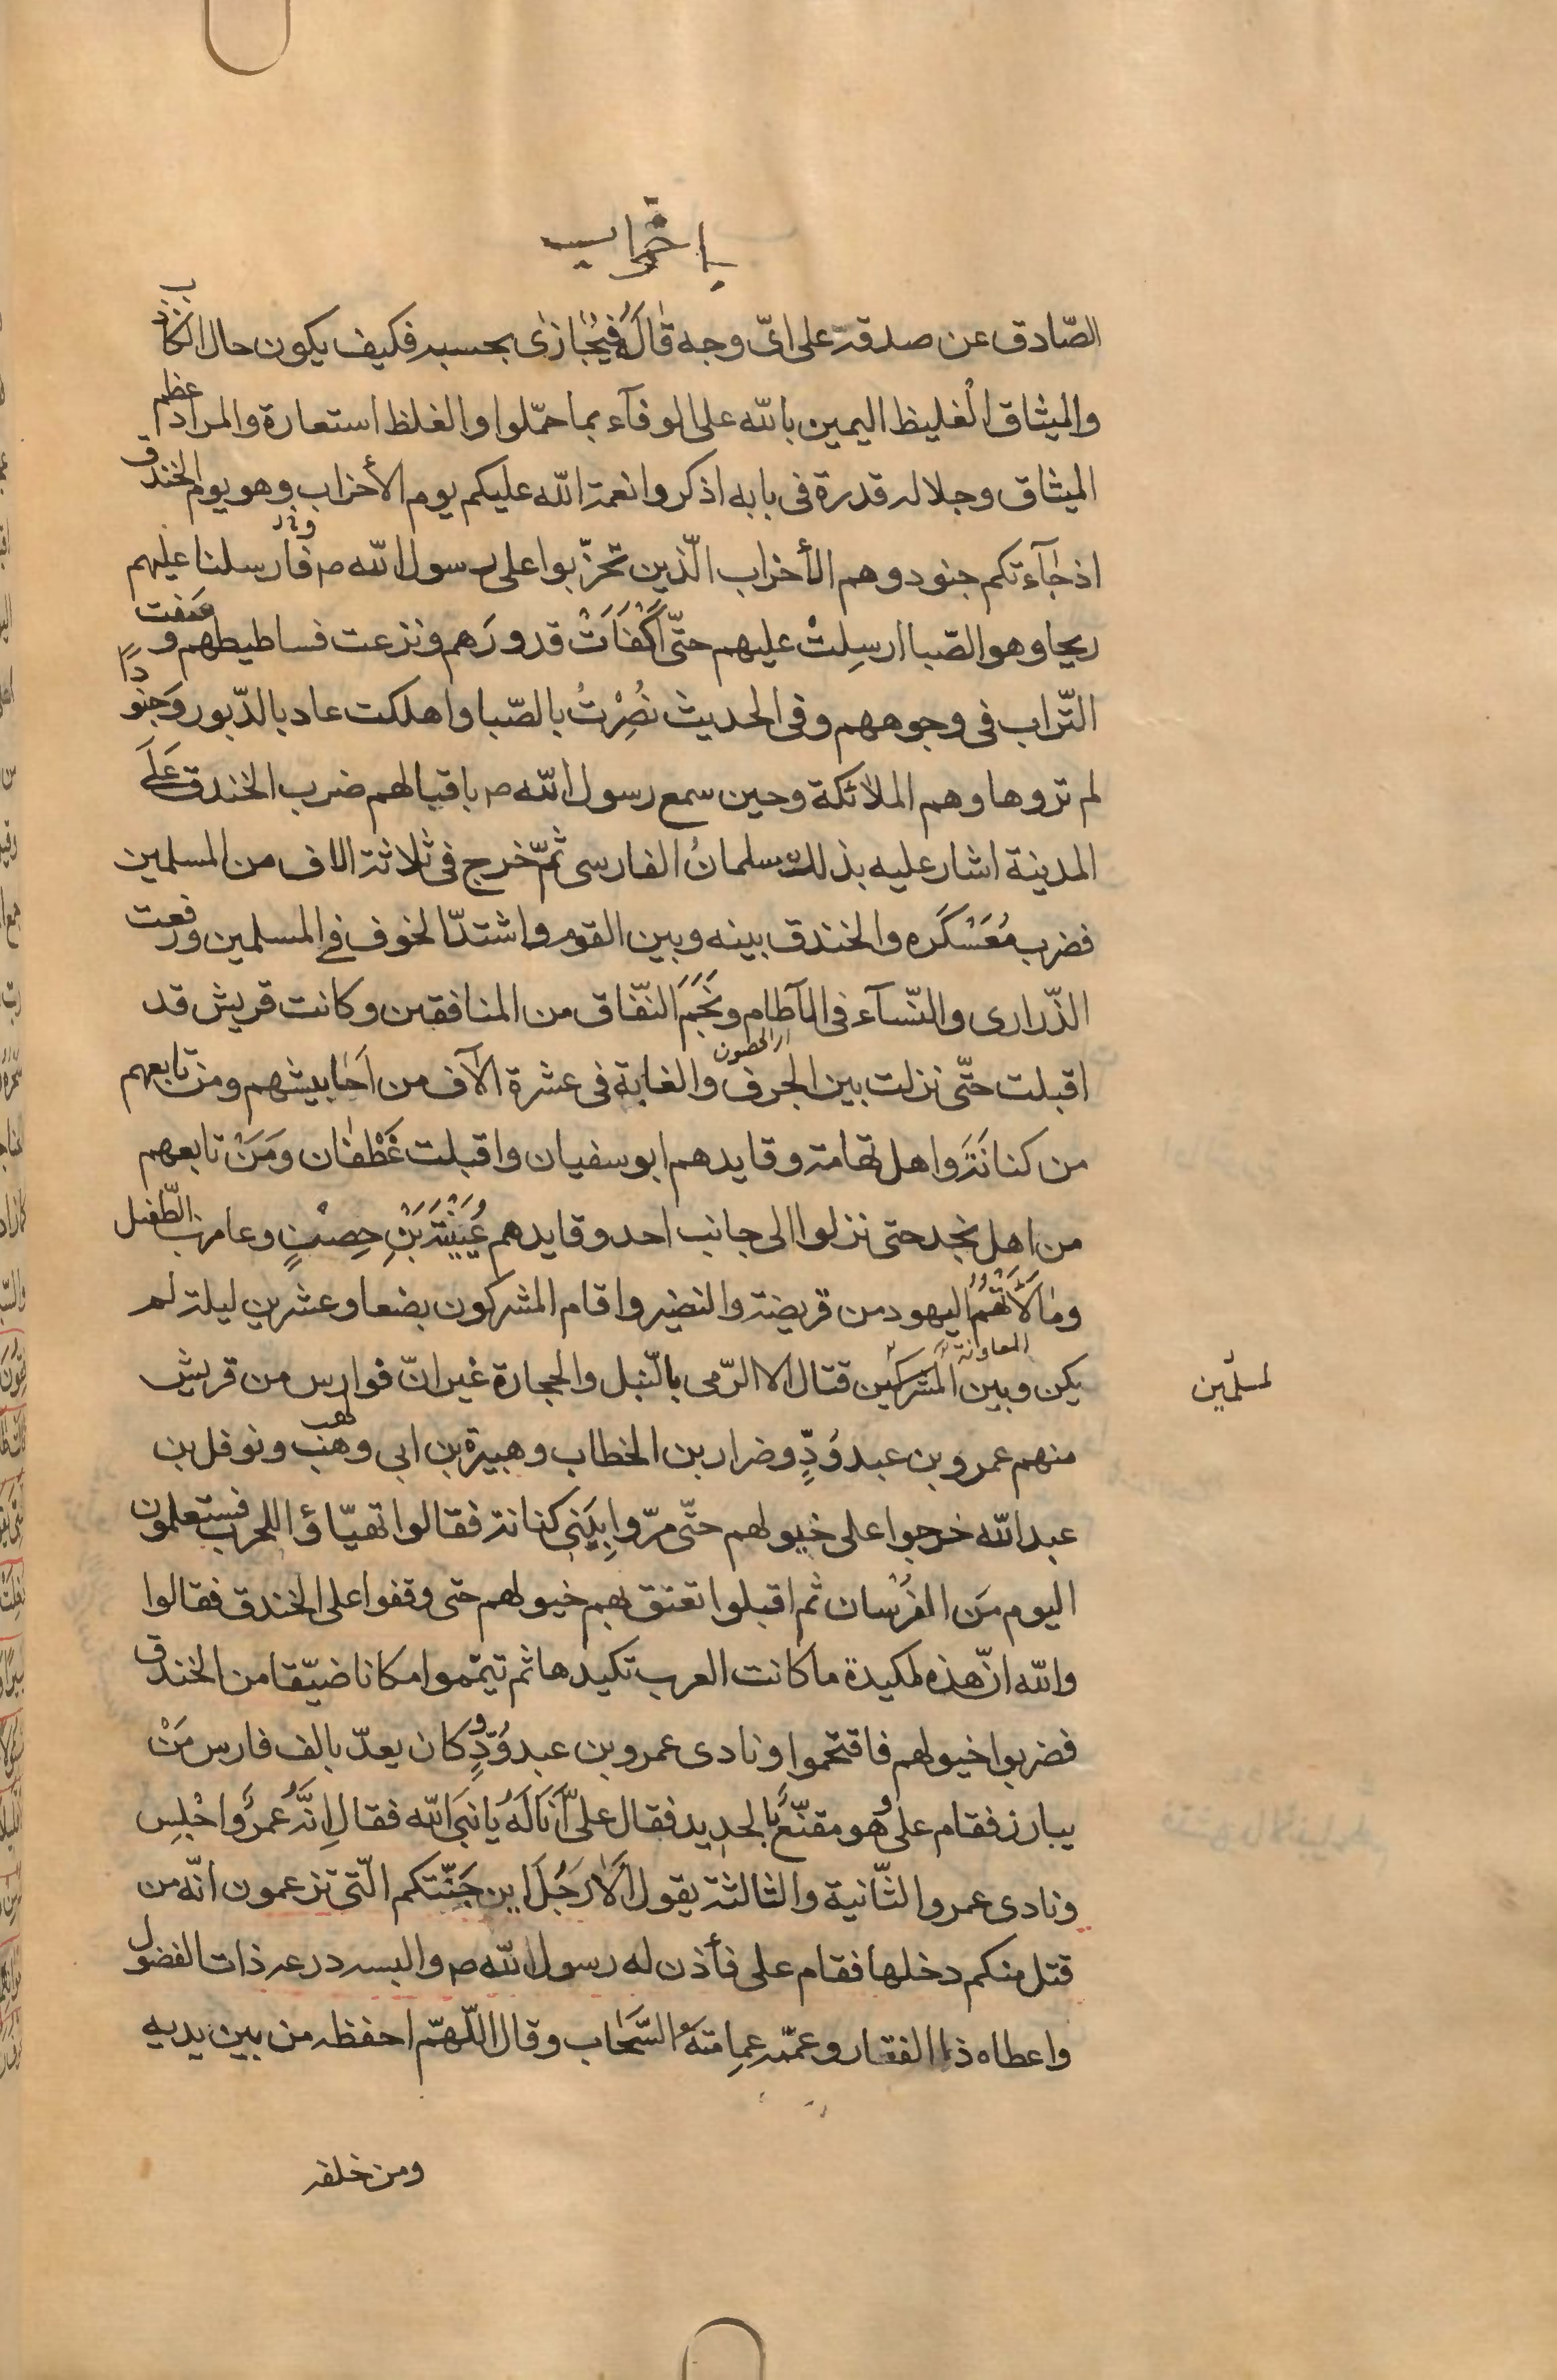 احزاب
الصّادق عن صدقه على اىّ وجه قاله فيجازى بحسبه فكيف يكون حال الكاذب
والميثاق الغليظ اليمين بالله على الوفآء بما حمّلوا والغلظ استعارة والمراد عظم
الميثاق وجلاله قدرة فى بابه اذكروا نعمة الله عليكم يوم الأحزاب وهو يوم الخندق
اذ جآءتكم جنود وهم الأحزاب الّذين تحزّبوا على رسول الله ص فأرسلنا عليهم
ريحا وهو الصّبا ارسِلتْ عليهم حتّى اكْفَأَتْ قدورَهم ونزعت فساطيطهم وسَفت
التّراب فى وجوههم وفى الحديث نُصِرْتُ بالصّبا واهلكت عاد بالدّبور وَجنودًا
لم تروها وهم الملائكة وحين سمع رسول الله ص باقبالهم ضرب الخندق عَلَى
المدينة اشار عليه بذلك سلمانُ الفارسى ثمّ خرج فى ثلاثة الاف من المسلمين
فضرب مُعَسْكَره والخندق بينه وبين القوم واشتدّ الخوف فى المسلمين ورفعت
الذّرارى والنّسآء فى الآطام ونَجَمَ النّفاق من المنافقين وكانت قريش قد
اى الحصون
اقبلت حتّى نزلت بين الجرف والغابة فى عشرة الآف من احابيشهم ومن تابعهم
من كنانَةَ واهل تهامة وقايدهم ابو سفيان واقبلت غَطْفان وَمَنْ تابعهم
من اهل نجد حتى نزلوا الى جانب احد وقايدهم عُيَيْنَةَ بَنِ حِصْنٍ وعامر بن الطّفيل
ومالَأَتْهُمُ اليهود من قريضة والنضير واقام المشركون بضعا وعشرين ليلة لم
المعاونة
يكن وبين المشركين قتال الا الرّمى بالنّبل والحجارة غير انّ فوارس من قريش
لمسلمين
منهم عمرو بن عبد وُدٍّ وضرار بن الخطاب وهبيرة بن ابى وهب ونوفل بن
عبد الله خرجوا على خيولهم حتّى مرّوا بِبَنى كنانة فقالوا تهيّاؤا للحرب فستعلمون
اليوم مَن الفُرْسان ثم اقبلوا تعنق بهم خيولهم حتى وقفوا على الخندق فقالوا
والله انّ هذه لمكيدة ما كانت العرب تكيدها ثم تيمّموا مكانا ضيّقا من الخندق
فضربوا خيولهم فاقتحموا ونادى عمرو بن عبد وُدٍّ وكان يعدّ بالف فارس مَنْ
يبارز فقام على وهو مقنّعٌ بالحديد فقال علىّ أَنَا لَهُ يا نبىَ الله فقال اِنَّهُ عمرٌو اجْلِس
ونادى عمرو الثّانية والثالثة يقول أَلا رَجُلَ اين جَنّتكم الّتى تزعمون انّه من
قتل منكم دخلها فقام على فأذن له رسول الله ص والبسه درعه ذات الفضول
واعطاه ذا الفقار وعمّمه عمامتهُ السَّحاب وقال اللّهمّ احفظه من بين يديه
ومن خلفه